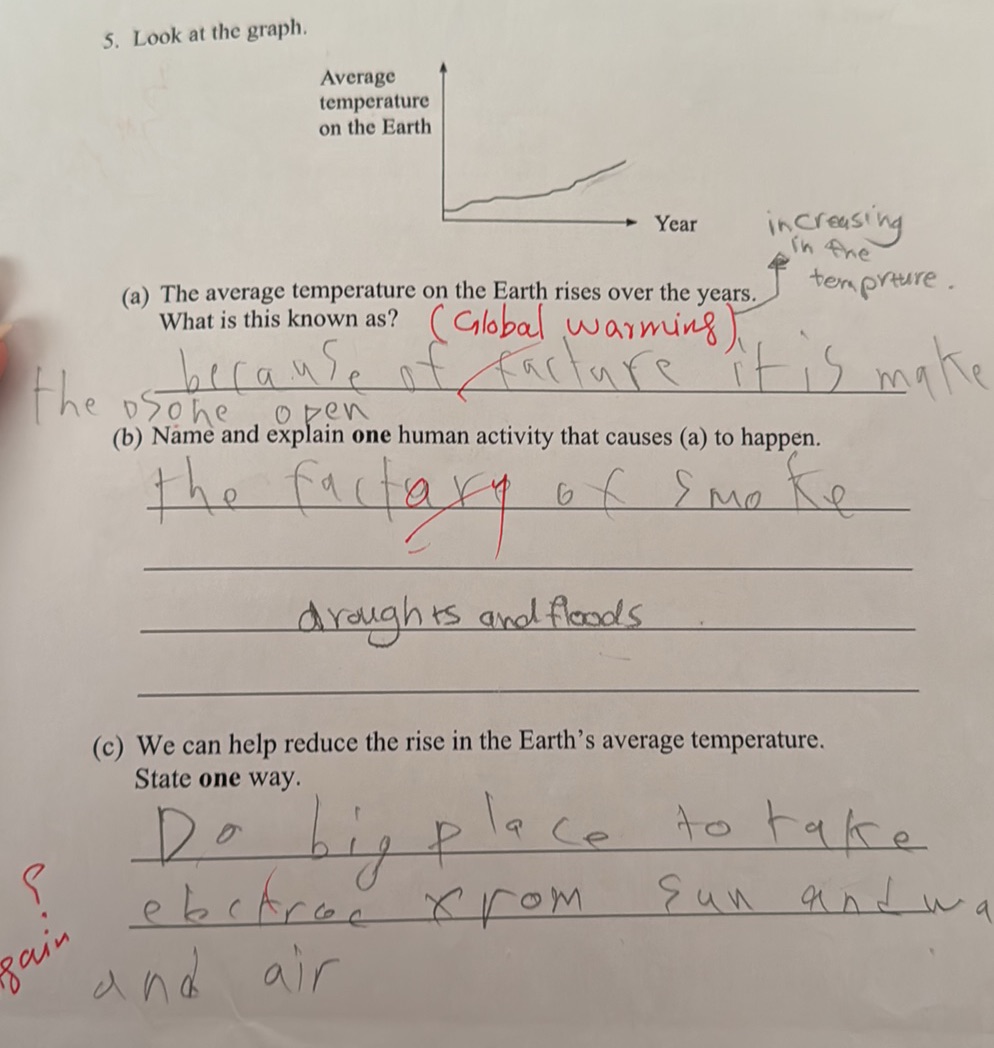 5. Look at the graph.
Average
temperature
on the Earth
Year
increasing
in the
temprture.
(a) The average temperature on the Earth rises over the years.
What is this known as? (Global warming)
because of facture it is make
the osone open
(b) Name and explain one human activity that causes (a) to happen.
the factary of smoke
droughts and floods
(c) We can help reduce the rise in the Earth's average temperature.
State one way.
Do big place to take
from sun and wa
and air
?
gain